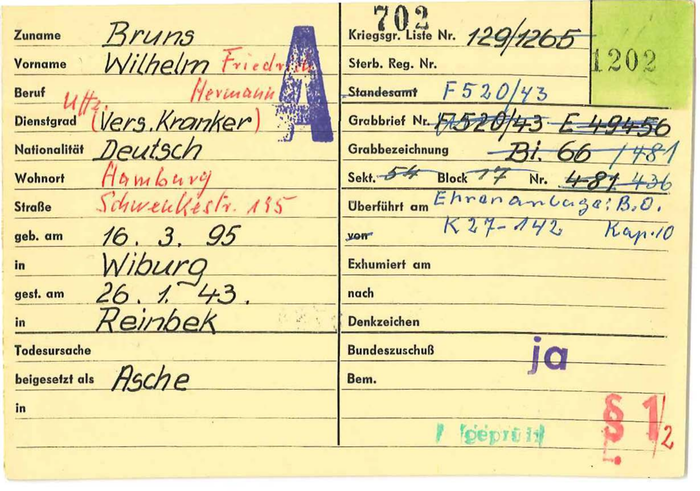 Zuname Bruns
Vorname Wilhelm Friedrich
Beruf Hermann
Uffz.
Dienstgrad (Vers. Kranker)
Nationalität Deutsch
Wohnort Hamburg
Straße Schwenkestr. 195
geb. am 16. 3. 95
in Wiburg
gest. am 26. 1. 43.
in Reinbek
Todesursache
beigesetzt als Asche
in
A
702
Kriegsgr. Liste Nr. 129/1265
1202
Sterb. Reg. Nr.
Standesamt F520/43
Grabbrief Nr. F520/43 E 49456
Grabbezeichnung Bi. 66 /481
Sekt. 54 Block 17 Nr. 481 436
Überführt am Ehrenanlage: B.O.
von K 27-142 Kap. 10
Exhumiert am
nach
Denkzeichen
Bundeszuschuß ja
Bem.
geprüft
§ 1/2